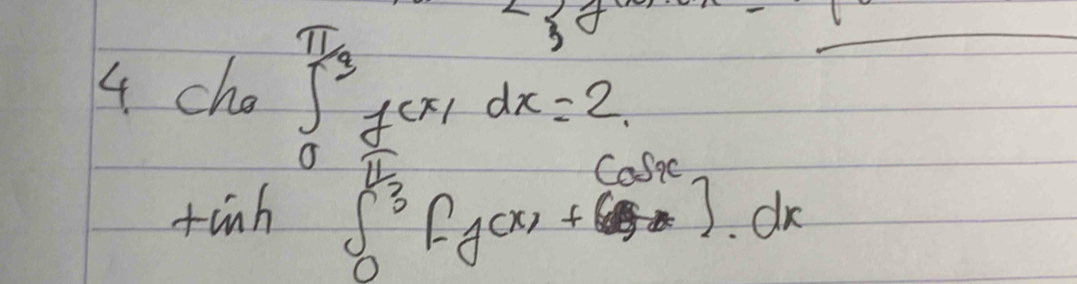 4. Cho ∫₀^{π/3} f(x) dx = 2.
tính ∫₀^{π/3} [f(x) + cosx]. dx